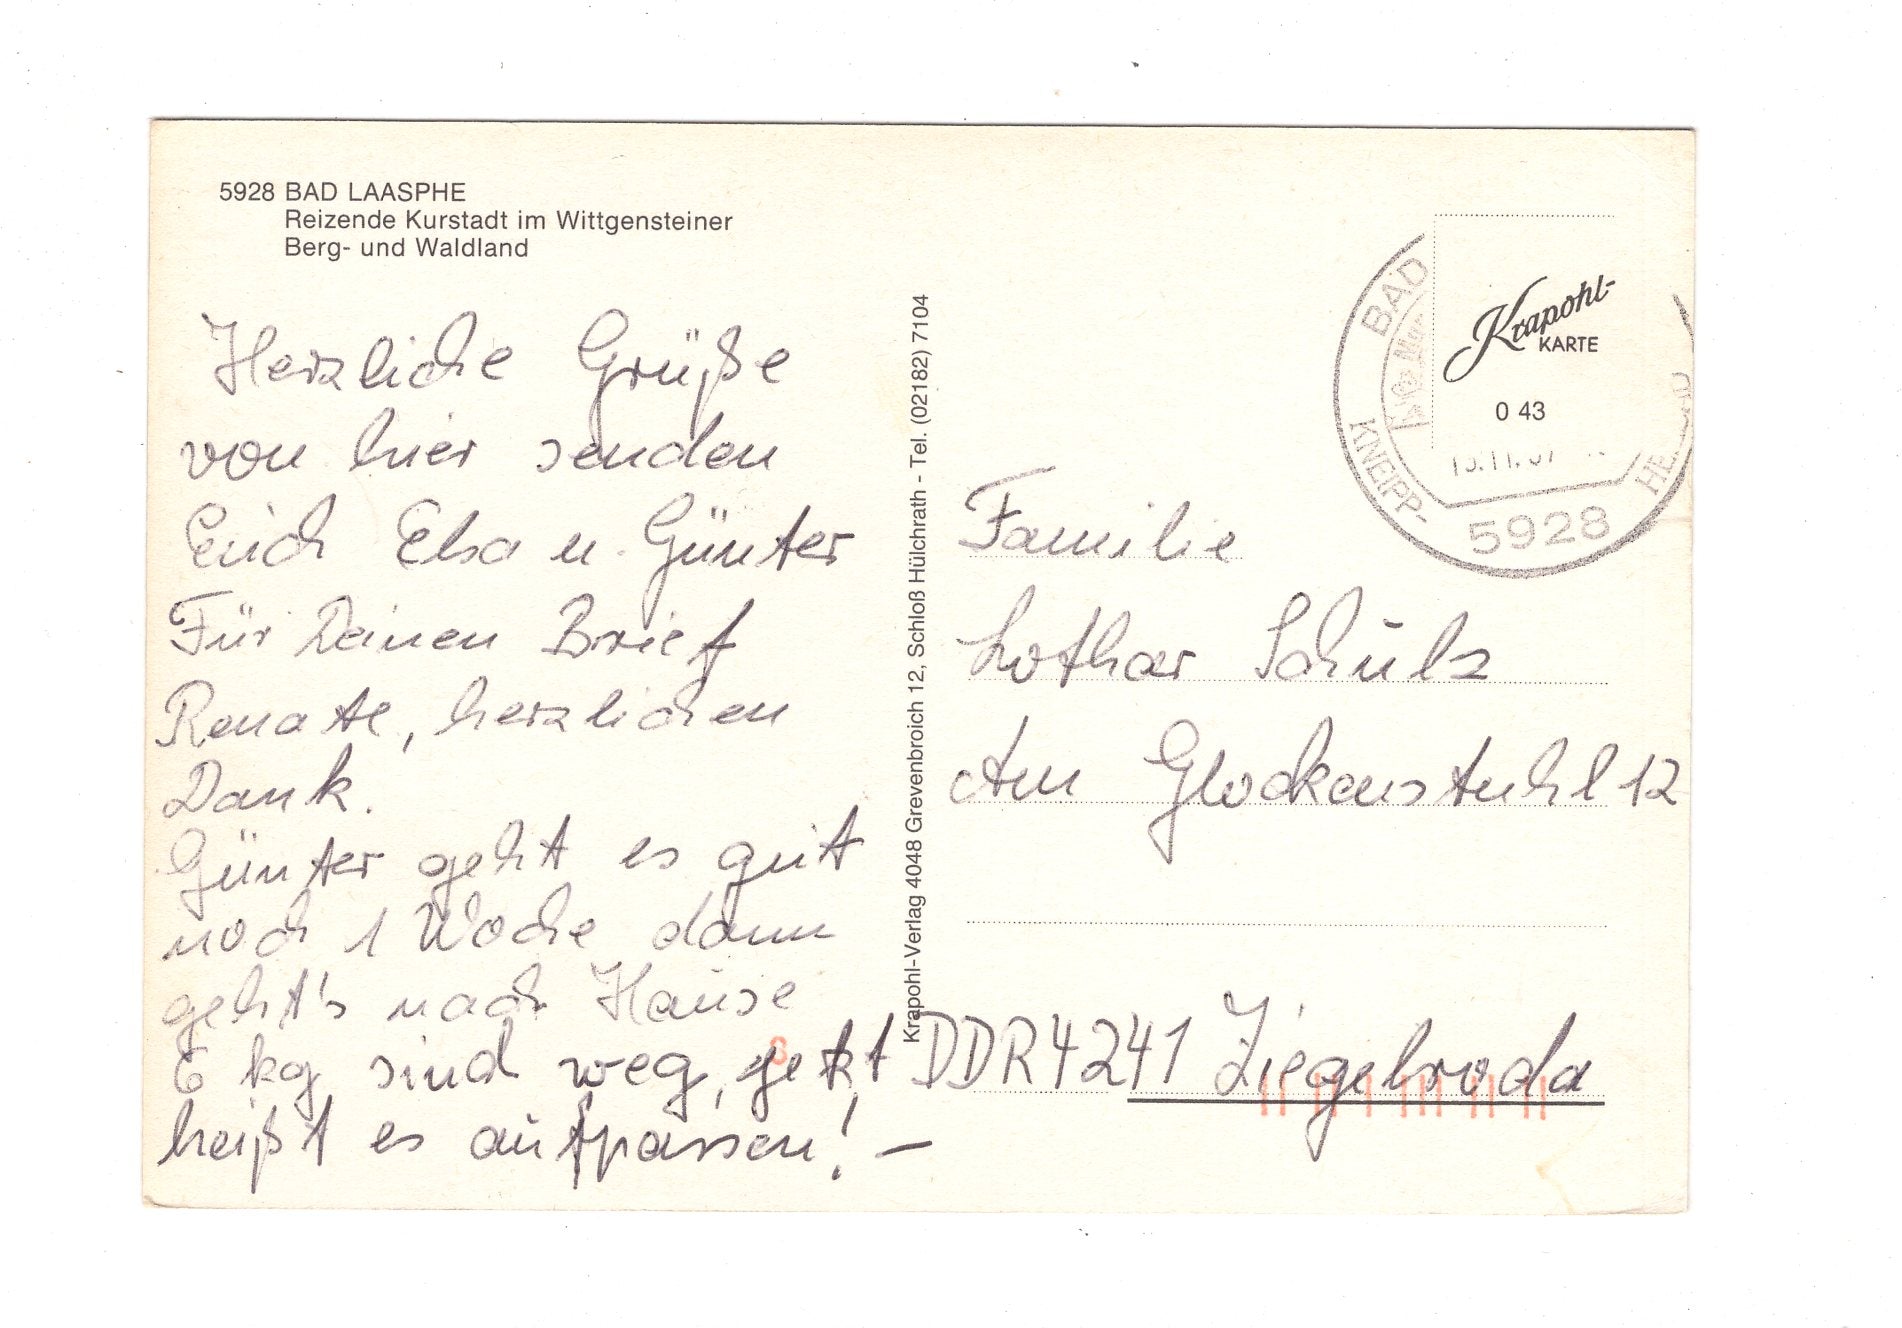 5928 BAD LAASPHE
Reizende Kurstadt im Wittgensteiner
Berg- und Waldland
Herzliche Grüße
von hier senden
Erich Elsa u. Günter
Für Deinen Brief
Renate, herzlichen
Dank.
Günter geht es gut
noch 1 Woche dann
geht's nach Hause
6 kg sind weg, jetzt
heißt es aufpassen! –
Krapohl-Verlag 4048 Grevenbroich 12, Schloß Hülchrath - Tel. (02182) 7104
Krapohl-
KARTE
0 43
BAD
KNEIPP-
5928
Familie
Lothar Schulz
Am Glockenstuhl 12
DDR 4241 Ziegelroda